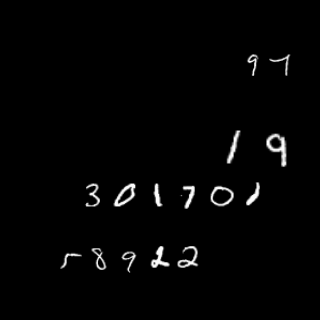 97
19
301701
58922